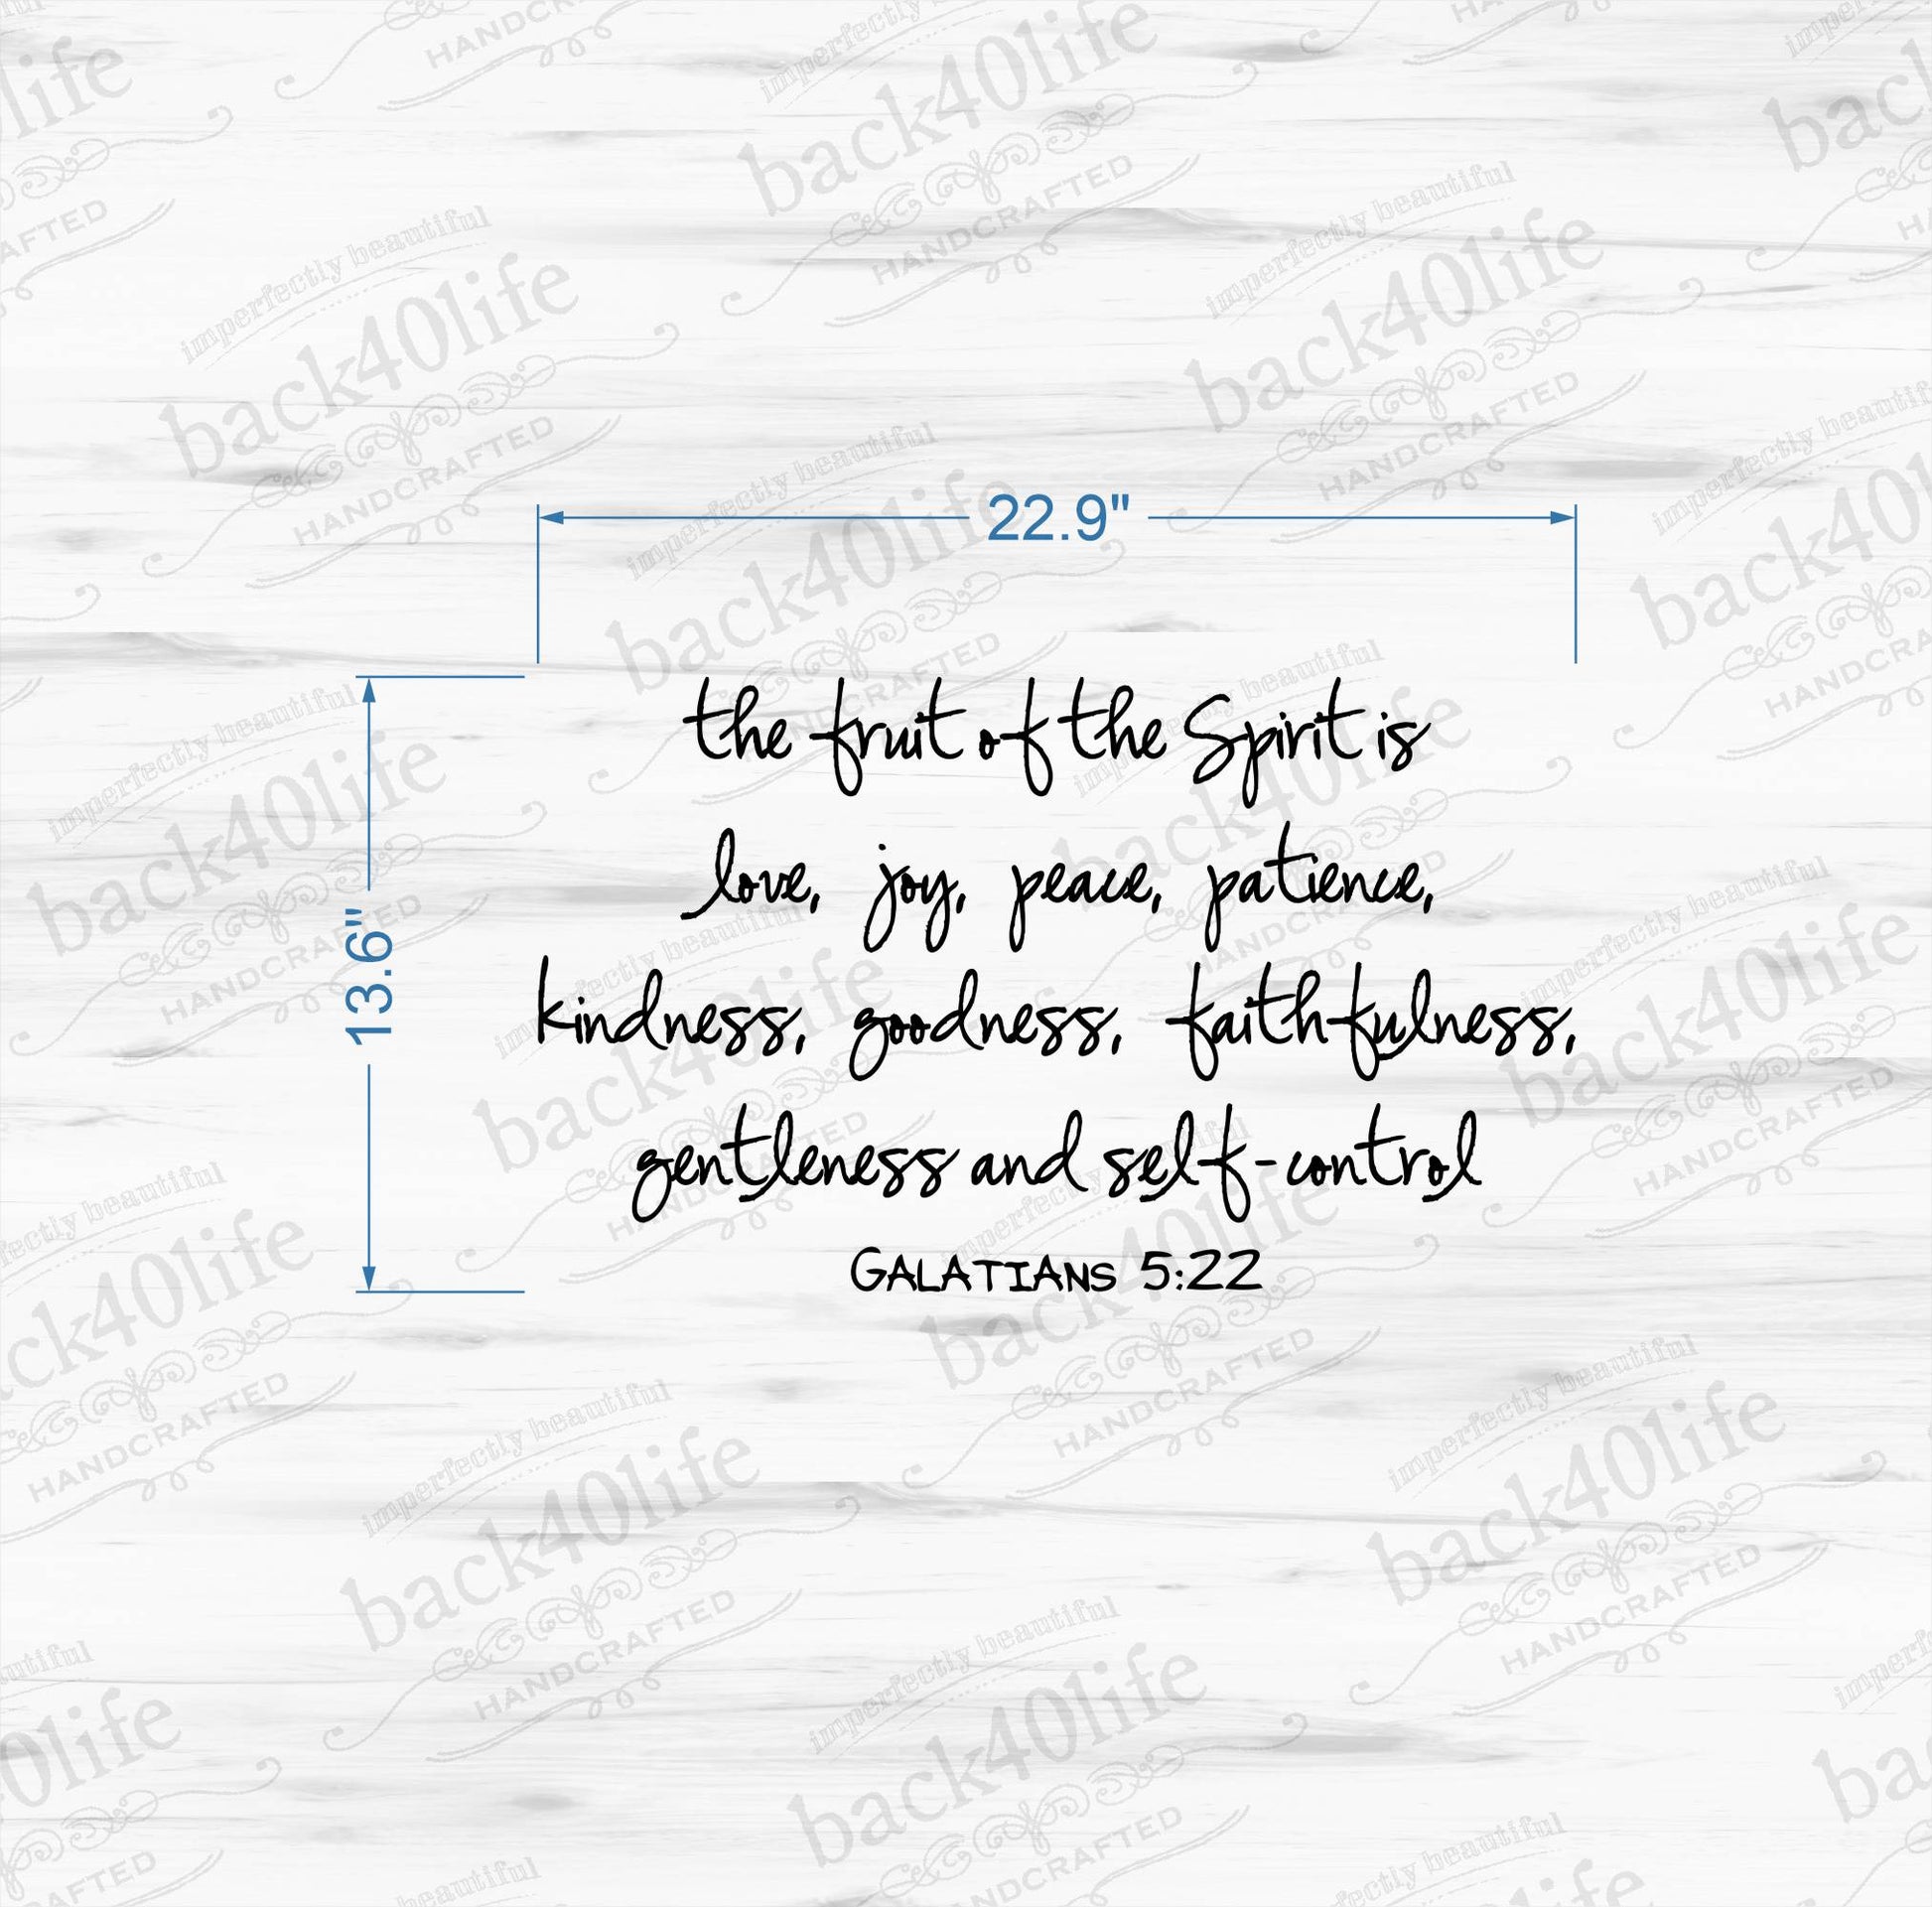 22.9"
13.6"
the fruit of the Spirit is
love, joy, peace, patience,
kindness, goodness, faithfulness,
gentleness and self-control
GALATIANS 5:22
imperfectly beautiful
back40life
HANDCRAFTED